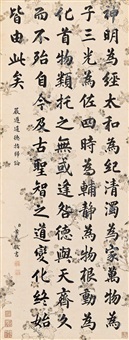 神明為經太和為紀清濁為家萬物為
子三光為佐四時為輔靜為物根動為
化首物類託之德與天齊久
而不殆自今及古聖智之道變化終始
皆由此矣
嚴遵道德指歸論
書